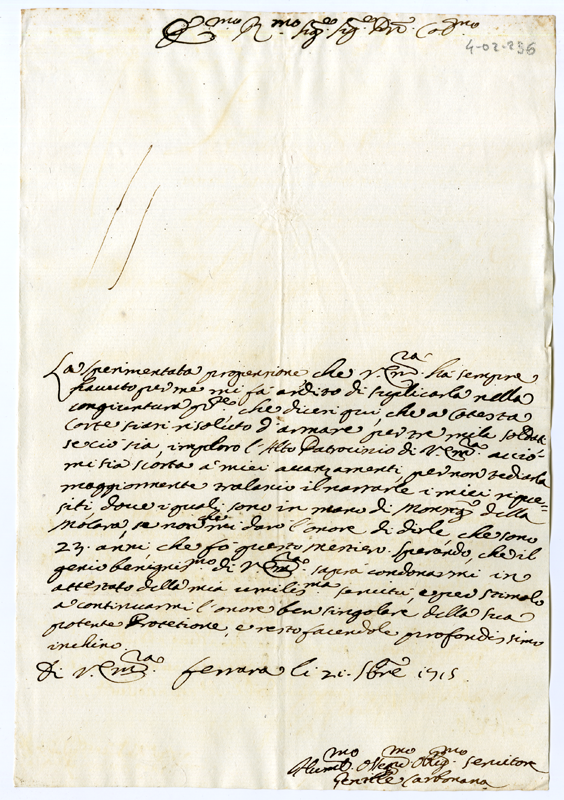 E.mo R.mo Sig.re Sig.re Pro.ne Col.mo
4-02-236
La sperimentata propensione, che V. Em.za ha sempre
havuto per me mi fà ardito di suplicarla nella
congiuntura p.nte che dicesi qui, che a cotesta
Corte siasi risoluto d'armare per tre mila soldati
se ciò sia, imploro l'Alto Patrocinio di V. Em.za acciò
mi sia scorta a miei avanzamenti per non tediarla
maggiormente tralascio il narrarle i miei requi=
siti, dove i quali sono in mano di Mons.re della
Molara, se non che mi dò l'onore di dirle, che sono
23. anni, che fò questo mestiero. Sperando, che il
genio benignis.mo di V. Em.za saprà condonarmi in
attestato della mia umilis.ma servitù, e per stimolo
a continuarmi l'onore ben singolare della sua
potente Protetione, e resto facendole profondissimo
inchino
Di V. Em.za Ferrara li 21. 1715.
Humil.mo Dev.mo Obl.mo Servitore
Gentile Carbonana